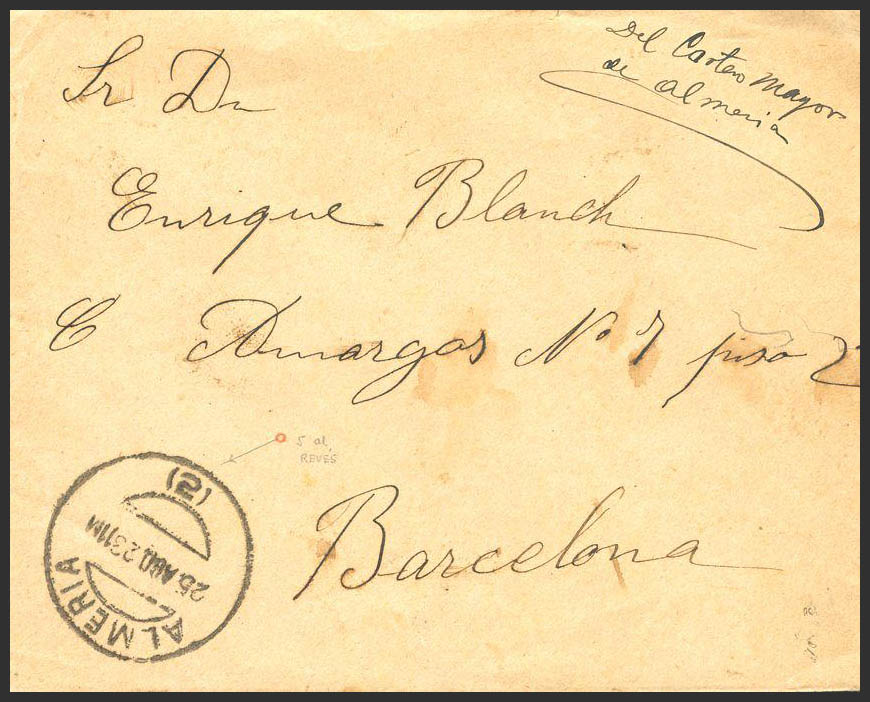 Del Cartero Mayor
de Almeria
Sr Dn
Enrique Blanch
C Amargos Nº 7 piso 2
5 al
REVES
(2)
25 AGO 23 11M
ALMERIA
Barcelona